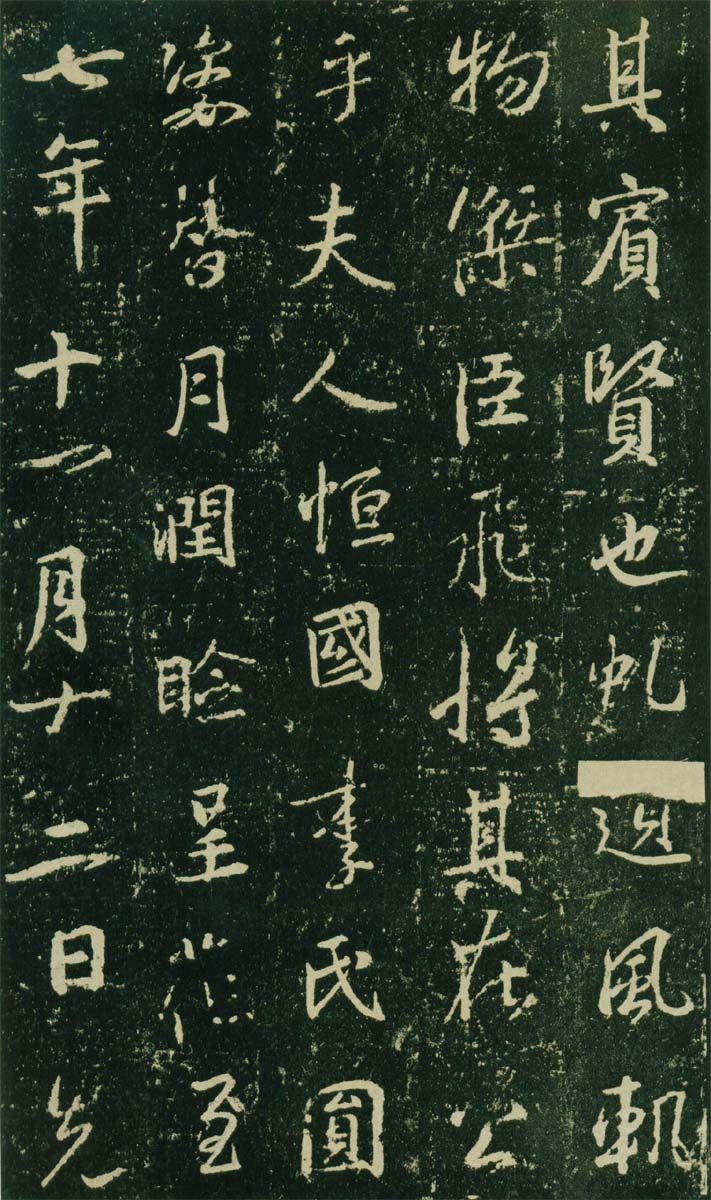 其賓賢也風軌
物傑臣飛將其在公
乎夫人恒國李氏圓
姿替月潤臉呈花至
七年十一月十二日先